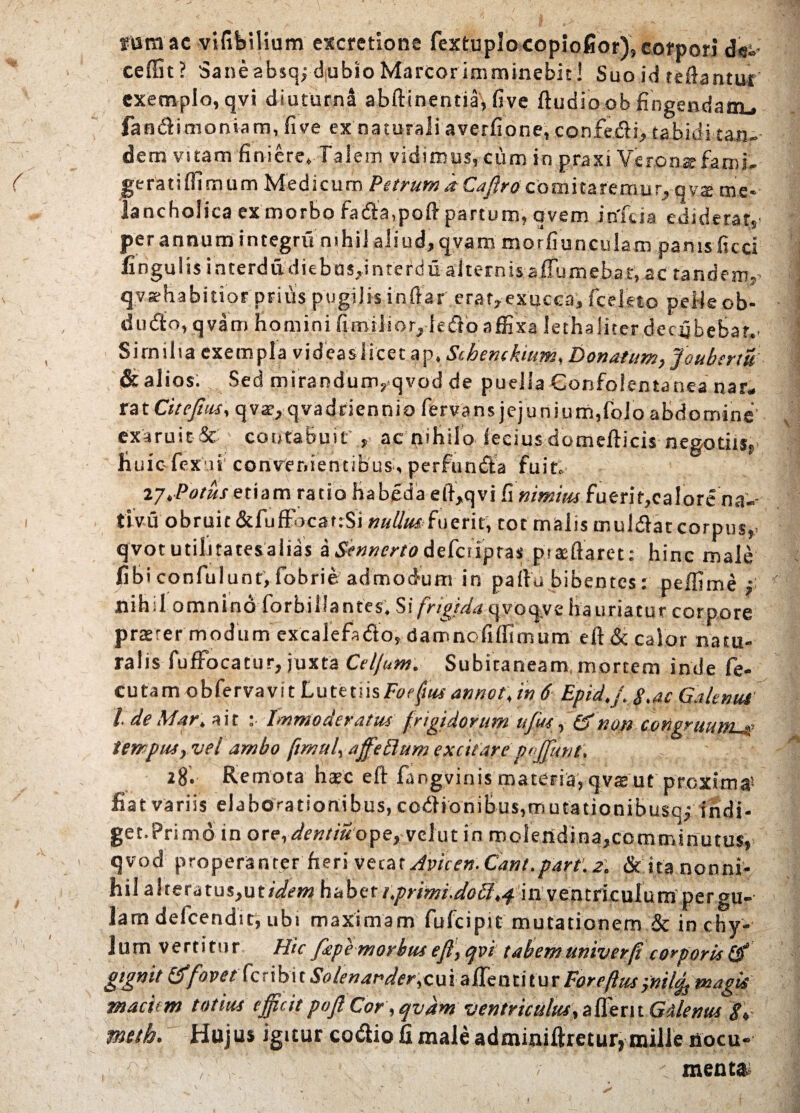 rum ac viſibilium excretione ſextuplo copioſior), corpori de-
ceſſit? Sane absq; dubio Marcor imminebit! Suo id teſtantur
exemplo, qvi diuturnâ abſtinentiâ, ſive ſtudio ob fingendam
ſanctimoniam, ſive ex naturali averſione, confecti, tabidi tan-
dem vitam finiêre. Talem vidimus, cùm in praxi Veronæ fami-
geratiſſimum Medicum Petrum à Caſtro comitaremur, qvæ me-
lancholica ex morbo facta, poſt partum, qvem inſcia ediderat,
per annum integrũ nihil aliud, qvam morſiunculam panis ſicci
ſingulis interdũ diebus, interdũ alternis aſſumebat, ac tandem,
qvæ habitior priùs pugilis inſtar erat, exucca, ſceleto pelle ob-
ducto, qvàm homini ſimilior, lecto affixa lethaliter decũbebat.
Similia exempla videas licet ap. Schenckium, Donatum, Joubertũ
& alios. Sed mirandum, qvod de puella Conſolentanea nar-
rat Citeſius, qvæ, qvadriennio ſervans jejunium, ſolo abdomine
exaruit & contabuit, ac nihilo ſecius domeſticis negotiis,
huic ſexui convenientibus, perfuncta fuit.
27. Potûs etiam ratio habẽda eſt, qvi ſi nimius fuerit, calorẽ na-
tivũ obruit & ſuffocat: Si nullus fuerit, tot malis mulctat corpus,
qvot utilitates aliàs à Sennerto deſcriptas præſtaret: hinc malè
ſibi conſulunt, ſobriè admodum in paſtu bibentes: peſſimè;
nihil omninò ſorbillantes. Si frigida qvoqve hauriatur corpore
præter modum excalefacto, damnoſiſſimum eſt & calor natu-
ralis ſuffocatur, juxta Celſum. Subitaneam mortem inde ſe-
cutam obſervavit Lutetiis Foeſius annot. in 6 Epid. ſ. 8. ac Galenus
l. de Mar. ait: Immoderatus frigidorum uſus, & non congruum
tempus, vel ambo ſimul, affectum excitare poſſunt.
28. Remota hæc eſt ſangvinis materia, qvæ ut proxima
fiat variis elaborationibus, coctionibus, mutationibusq; indi-
get. Primò in ore, dentiũ ope, velut in molendina, comminutus,
qvod properanter fieri vetat Avicen. Cant. part. 2. & ita nonni-
hil alteratus, ut idem habet 1. primi. doct. 4 in ventriculum per gu-
lam deſcendit, ubi maximam ſuſcipit mutationem & in chy-
lum vertitur. Hic ſæpè morbus eſt, qvi tabem univerſi corporis &
gignit & fovet ſcribit Solenander, cui aſſentitur Foreſtus; nilq; magis
maciem totius efficit poſt Cor, qvàm ventriculus, aſſerit Galenus 8.
meth. Hujus igitur coctio ſi malè adminiſtretur, mille nocu-
menta